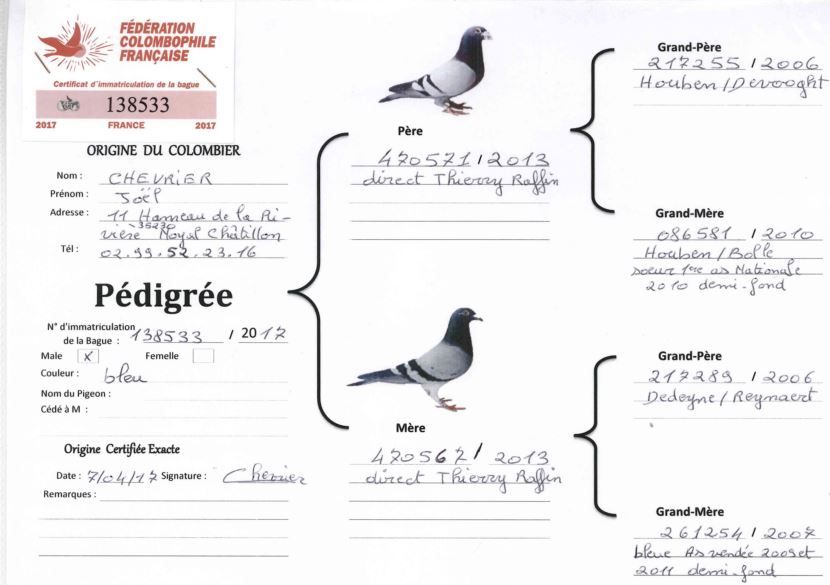 FÉDÉRATION
COLOMBOPHILE
FRANÇAISE
Certificat d'immatriculation de la bague
138533
2017 FRANCE 2017
ORIGINE DU COLOMBIER
Nom : CHEVRIER
Prénom : Joël
Adresse : 11 Hameau de la Ri-
vière 35230 Noyal Châtillon
Tél : 02.99.52.23.16
Pédigrée
N° d'immatriculation
de la Bague : 138533 / 2017
Male X Femelle
Couleur : bleu
Nom du Pigeon :
Cédé à M :
Origine Certifiée Exacte
Date : 7/04/17 Signature : Chevrier
Remarques :
Père
470571 / 2013
direct Thierry Raffin
Mère
470567 / 2013
direct Thierry Raffin
Grand-Père
217255 / 2006
Houben / Devooght
Grand-Mère
086581 / 2010
Houben / Bolle
soeur 1ere as Nationale
2010 demi-fond
Grand-Père
217289 / 2006
Dedeyne / Reynaert
Grand-Mère
261254 / 2007
bleue As vendée 2009 et
2011 demi-fond